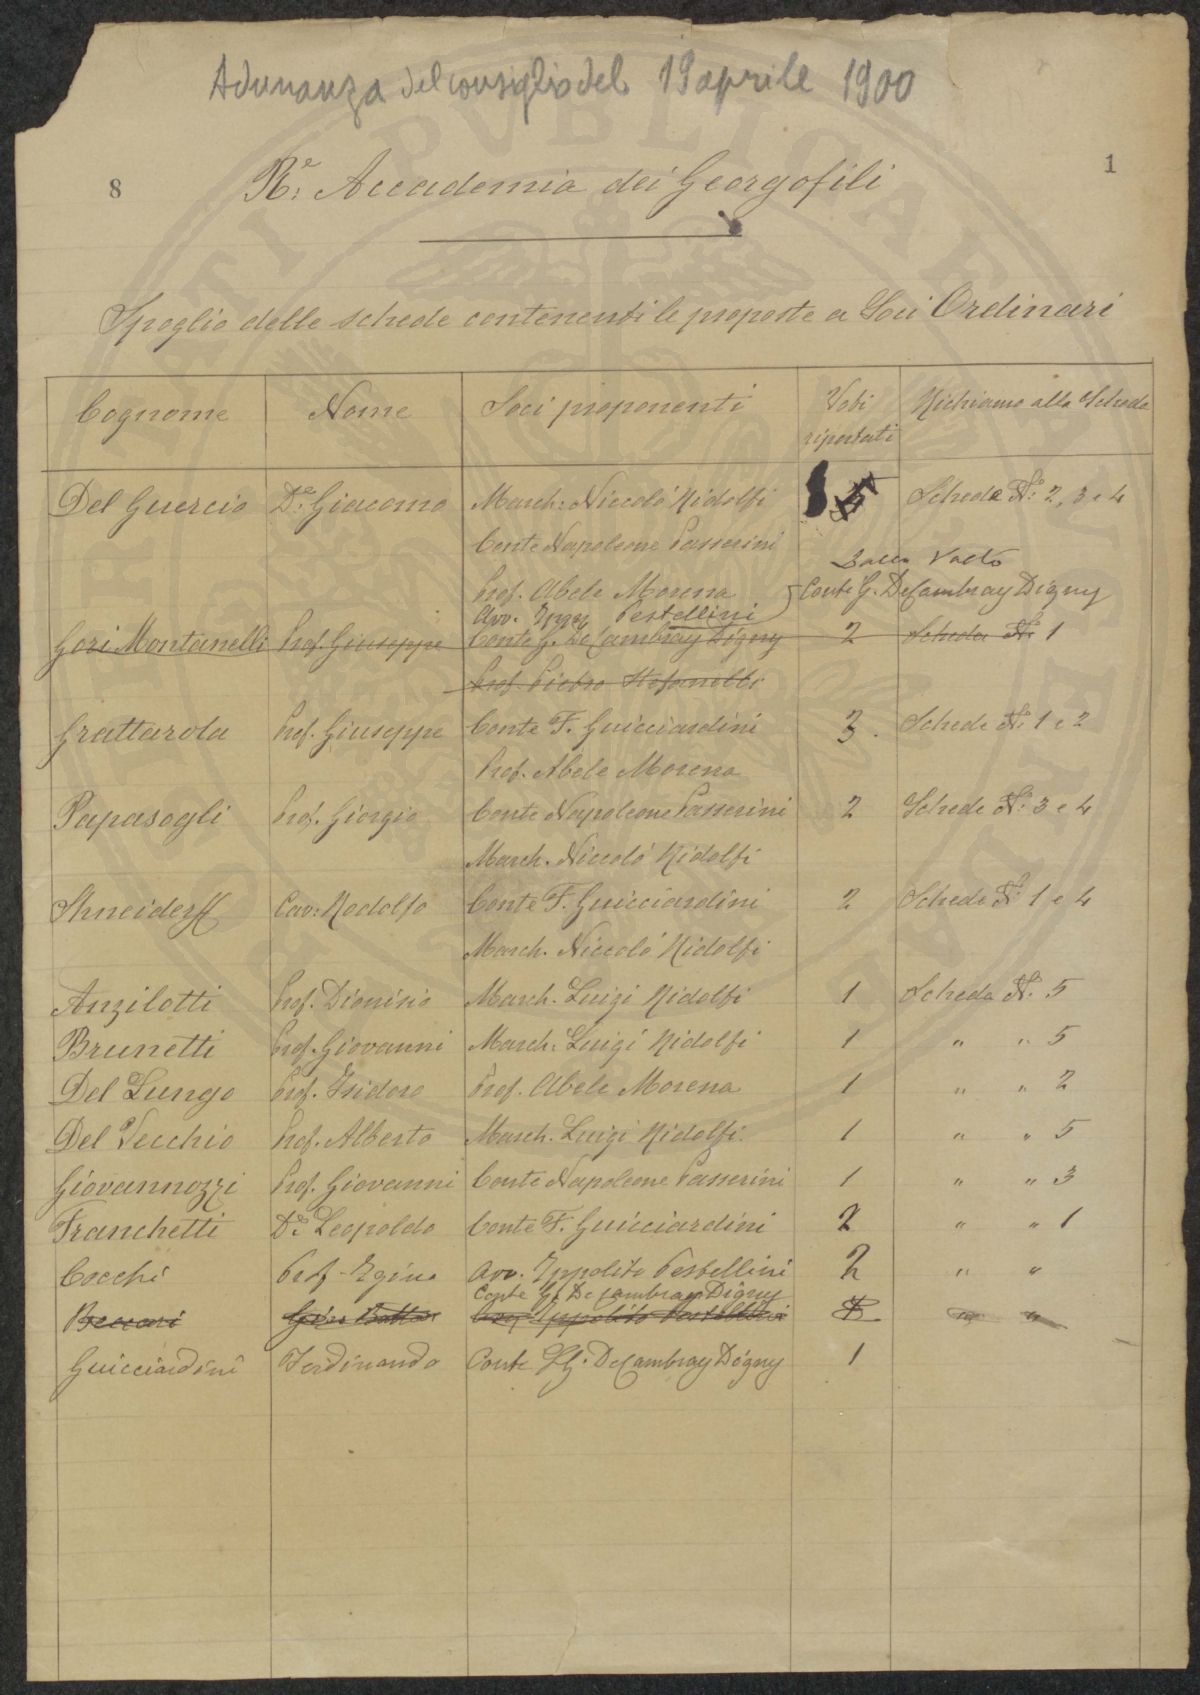 Adunanza del consiglio del 19 aprile 1900
8
1
Rᵉ. Accademia dei Georgofili
Spoglio delle schede contenenti le proposte a Soci Ordinari
Cognome Nome Soci proponenti Voti riportati Richiamo alla Scheda
Del Guercio Dʳ. Giacomo March: Niccolò Ridolfi 5 Schede Nº. 2, 3 e 4
Conte Napoleone Passerini
Prof. Abele Morena Conte G. De Cambray Digny
Avv. Pestellini
Gori Montanelli Prof. Giuseppe Conte G. De Cambray Digny 2 Scheda Nº. 1
Prof. Pietro Stefanelli
Grattarola Prof. Giuseppe Conte F. Guicciardini 3. Schede Nº. 1 e 2
Prof. Abele Morena
Papasogli Prof. Giorgio Conte Napoleone Passerini 2 Schede Nº. 3 e 4
March. Niccolò Ridolfi
Shneiderff Cav: Rodolfo Conte F. Guicciardini 2 Schede Nº. 1 e 4
March. Niccolò Ridolfi
Anzilotti Prof. Dionisio March. Luigi Ridolfi 1 Scheda Nº. 5
Brunetti Prof. Giovanni March: Luigi Ridolfi 1 " " 5
Del Lungo Prof. Isidoro Prof. Abele Morena 1 " " 2
Del Vecchio Prof. Alberto March. Luigi Ridolfi. 1 " " 5
Giovannozzi Prof. Giovanni Conte Napoleone Passerini 1 " " 3
Franchetti Dʳ. Leopoldo Conte F. Guicciardini 2 " " 1
Cocchi Prof. Igino Avv. Ippolito Pestellini 2 " "
Conte G. De Cambray Digny
Beccari Ippolito Pestellini " "
Guicciardini Ferdinando Conte G. De Cambray Digny 1